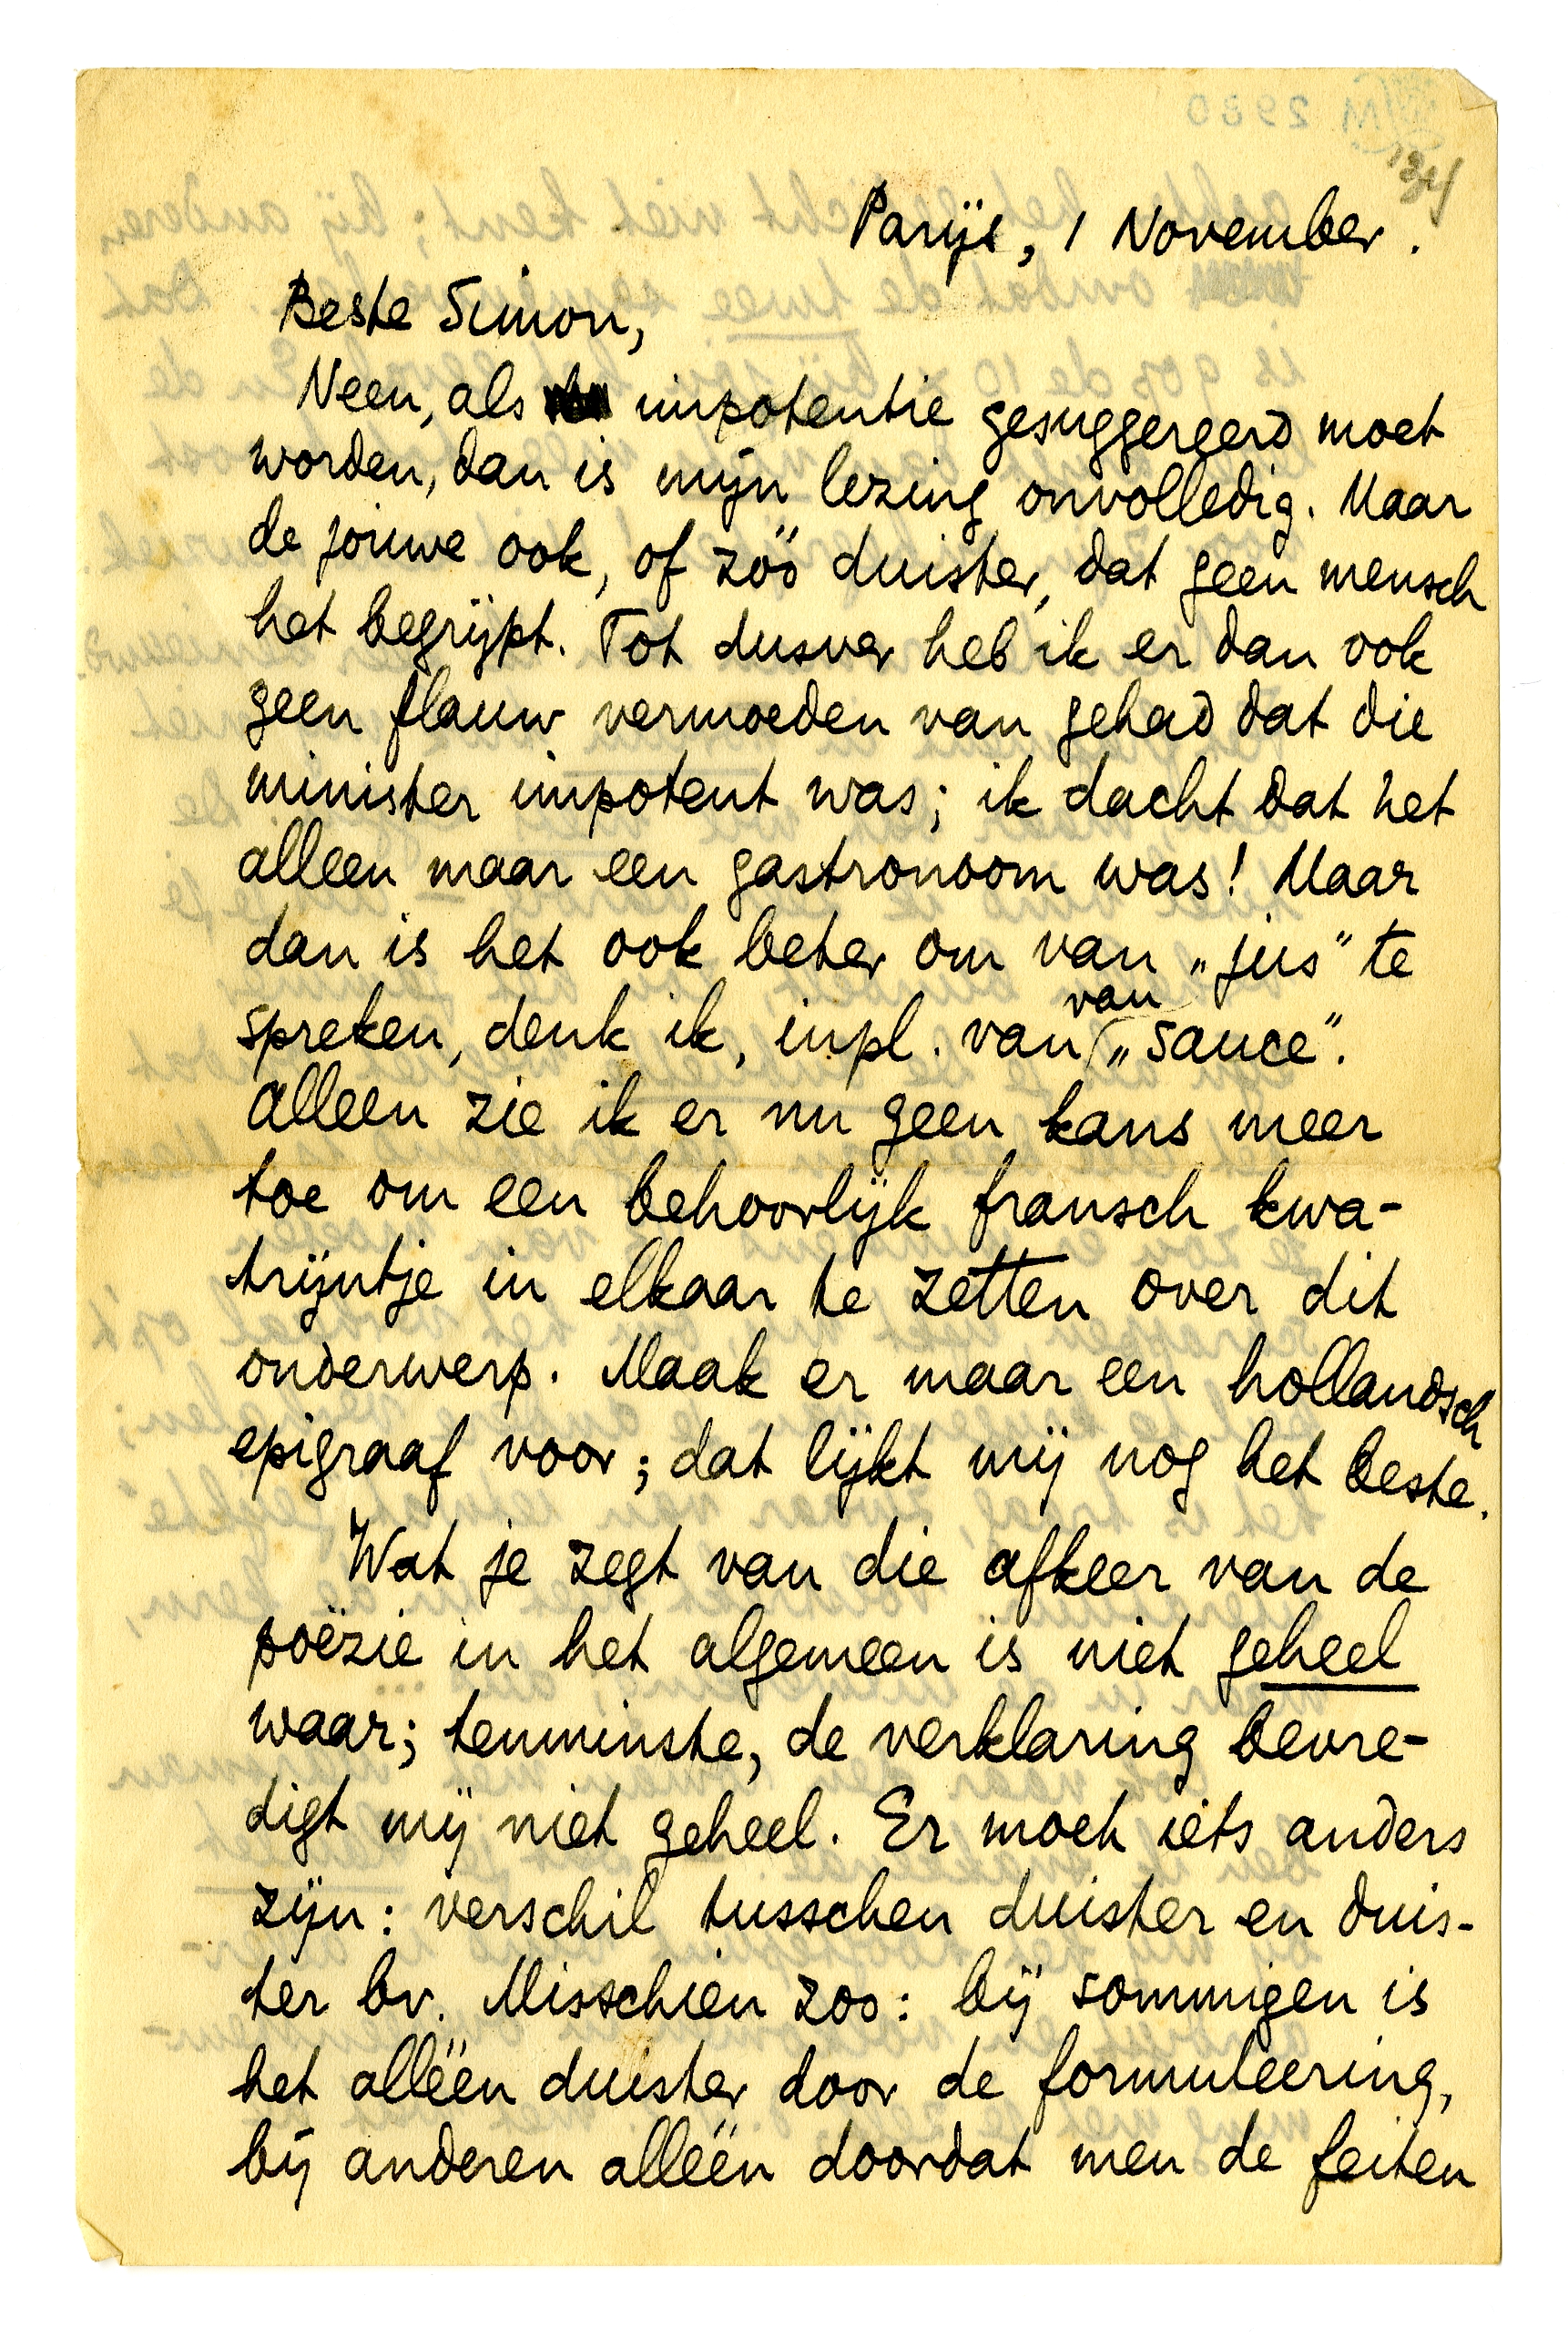 '34
Parijs, 1 November.
Beste Simon,
Neen, als impotentie gesuggereerd moet
worden, dan is mijn lezing onvolledig. Maar
de jouwe ook, of zóó duister, dat geen mensch
het begrijpt. Tot dusver heb ik er dan ook
geen flauw vermoeden van gehad dat die
minister impotent was; ik dacht dat het
alleen maar een gastronoom was! Maar
dan is het ook beter om van „jus" te
spreken, denk ik, inpl. van van „sauce".
Alleen zie ik er nu geen kans meer
toe om een behoorlijk fransch kwa-
trijntje in elkaar te zetten over dit
onderwerp. Maak er maar een hollandsch
epigraaf voor; dat lijkt mij nog het beste.
Wat je zegt van die afkeer van de
poëzie in het algemeen is niet geheel
waar; tenminste, de verklaring bevre-
digt mij niet geheel. Er moet iets anders
zijn: verschil tusschen duister en duis-
ter bv. Misschien zoo: bij sommigen is
het alléén duister door de formuleering,
bij anderen alléén doordat men de feiten